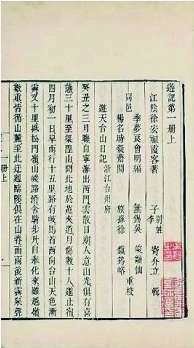 遊記第一册上
江陰徐宏祖霞客著
李寄介立輯
同邑
季夢良會明編
楊名時凝齋閱
重校
遊天台山日記 浙江台州府
癸丑之三月晦自寧海出西門雲散日朗人意山光俱有喜
態三十里至梁隍山聞此地於菟夾道月傷數十人遂止宿
四月初一日早雨行十五里路有岐馬首西向台山天色漸
霽又十里抵松門嶺山峻路滑舍騎步行自奉化來雖越嶺
數重皆循山麓至此迂迴臨陟俱在山脊而雨後新霽泉聲
一册上